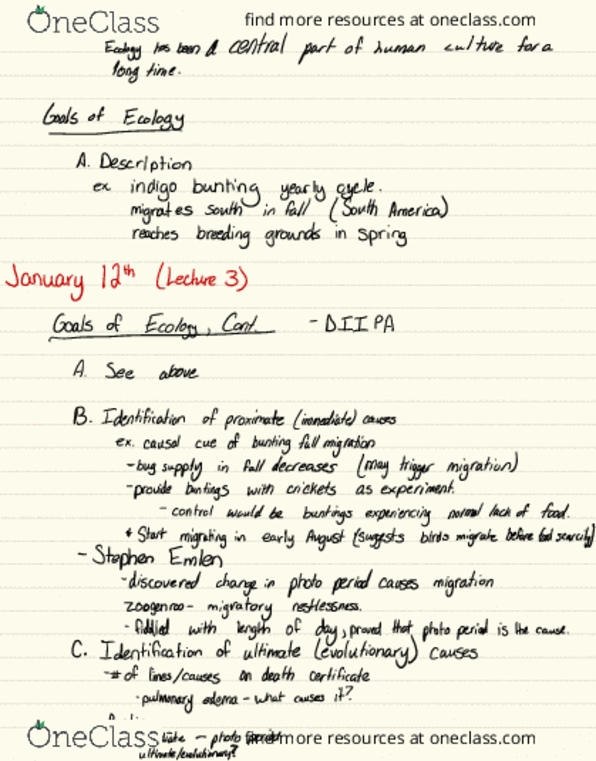 OneClass find more resources at oneclass.com
Ecology has been a central part of human culture for a
long time.
Goals of Ecology
A. Description
ex indigo bunting yearly cycle.
migrates south in fall (South America)
reaches breeding grounds in spring
January 12th (Lecture 3)
Goals of Ecology, Cont. - DIIPA
A. See above
B. Identification of proximate (immediate) causes
ex. causal cue of bunting fall migration
-bug supply in fall decreases (may trigger migration)
-provide buntings with crickets as experiment.
- control would be buntings experiencing normal lack of food.
* Start migrating in early August (suggests birds migrate before food scarcity)
- Stephen Emlen
-discovered change in photo period causes migration
zoogenroo- migratory restlessness.
- fiddled with length of day, proved that photo period is the cause.
C. Identification of ultimate (evolutionary) causes
-# of lines/causes on death certificate
-pulmonary edema - what causes it?
OneClass find more resources at oneclass.com
- photo
ultimate/evolutionary?